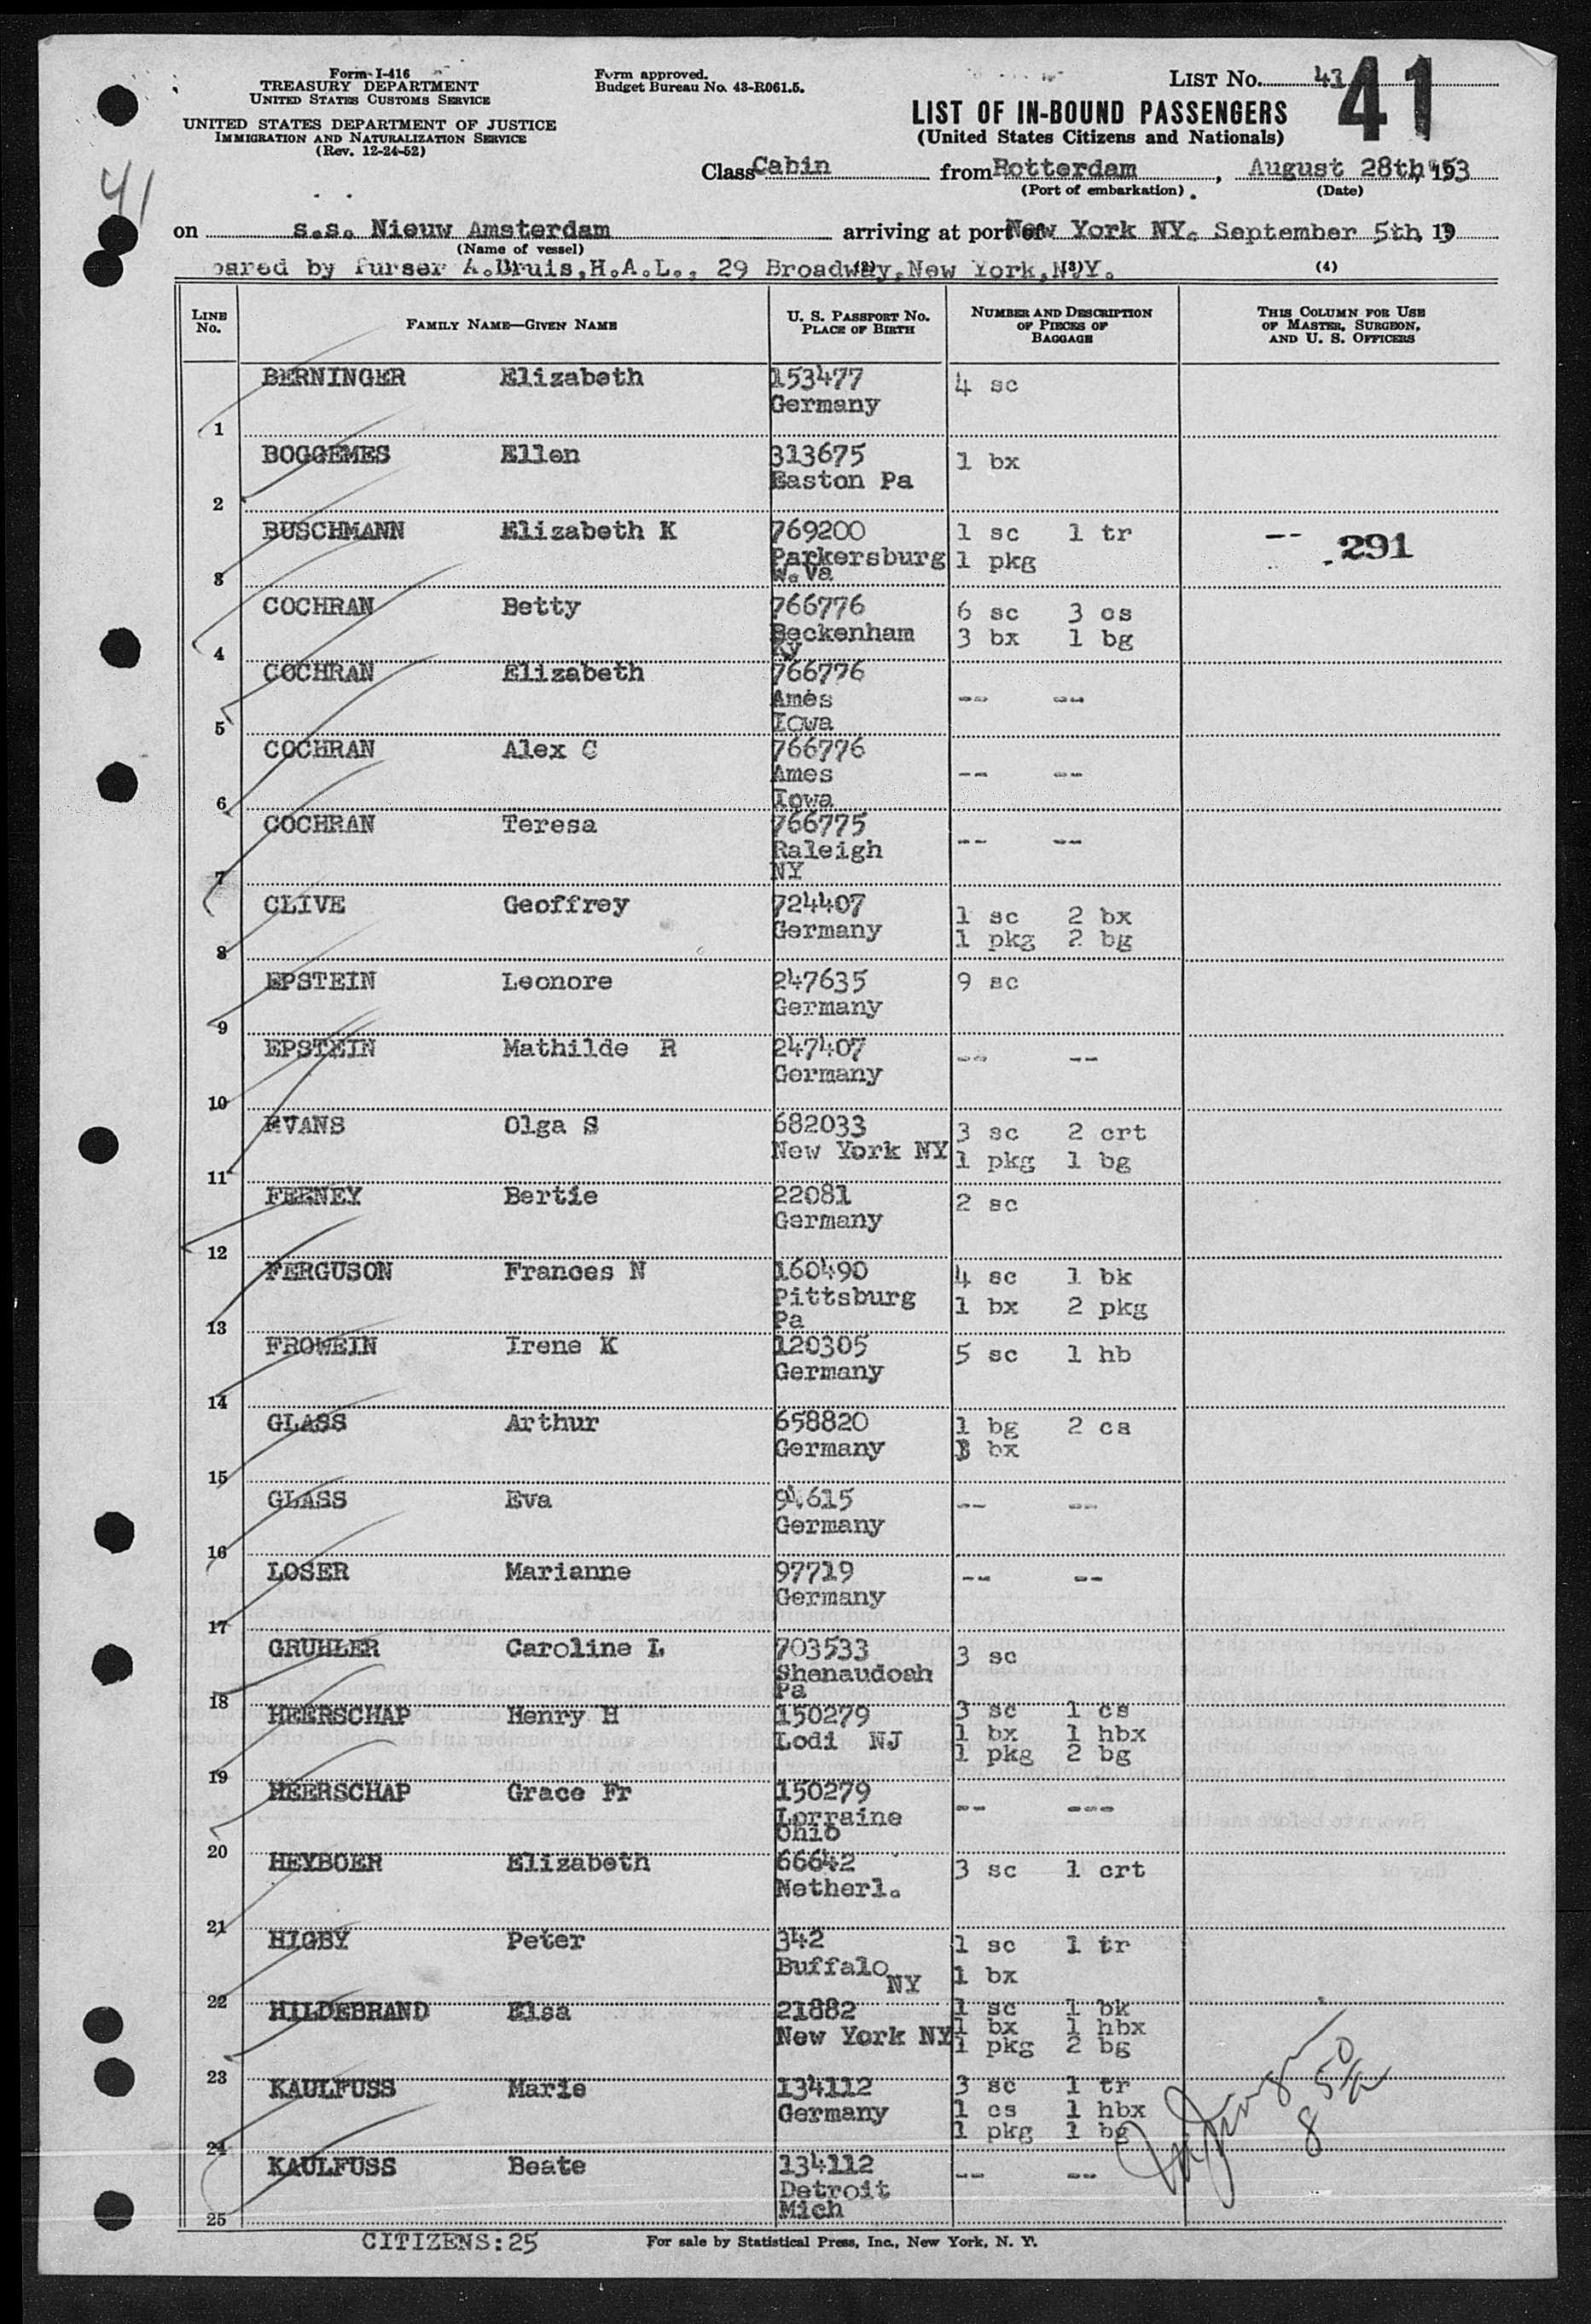 Form I-416
TREASURY DEPARTMENT
UNITED STATES CUSTOMS SERVICE
UNITED STATES DEPARTMENT OF JUSTICE
IMMIGRATION AND NATURALIZATION SERVICE
(Rev. 12-24-52)
Form approved.
Budget Bureau No. 43-R061.5.
LIST No. 41
41
LIST OF IN-BOUND PASSENGERS
(United States Citizens and Nationals)
41
Class Cabin from Rotterdam, August 28th, 1953
(Port of embarkation) (Date)
on s.s. Nieuw Amsterdam arriving at port of New York NY. September 5th, 19
(Name of vessel)
pared by Purser A.Druis,H.A.L., 29 Broadway,New York,N.Y.
(2) (3) (4)
LINE No. FAMILY NAME—GIVEN NAME U. S. PASSPORT No. PLACE OF BIRTH NUMBER AND DESCRIPTION OF PIECES OF BAGGAGE THIS COLUMN FOR USE OF MASTER, SURGEON, AND U. S. OFFICERS
1 BERNINGER Elizabeth 153477 4 sc
Germany
2 BOGGEMES Ellen 313675 1 bx
Easton Pa
3 BUSCHMANN Elizabeth K 769200 1 sc 1 tr -- 291
Parkersburg 1 pkg
W.Va
4 COCHRAN Betty 766776 6 sc 3 cs
Beckenham 3 bx 1 bg
Ky
5 COCHRAN Elizabeth 766776
Ames -- --
Iowa
6 COCHRAN Alex C 766776
Ames -- --
Iowa
7 COCHRAN Teresa 766775 -- --
Raleigh
NY
8 CLIVE Geoffrey 724407 1 sc 2 bx
Germany 1 pkg 2 bg
9 EPSTEIN Leonore 247635 9 sc
Germany
10 EPSTEIN Mathilde R 247407 -- --
Germany
11 EVANS Olga S 682033 3 sc 2 crt
New York NY 1 pkg 1 bg
12 FEENEY Bertie 22081 2 sc
Germany
13 FERGUSON Frances N 160490 4 sc 1 bk
Pittsburg 1 bx 2 pkg
Pa
14 FROWEIN Irene K 120305 5 sc 1 hb
Germany
15 GLASS Arthur 658820 1 bg 2 cs
Germany 3 bx
16 GLASS Eva 94615 -- --
Germany
17 LOSER Marianne 97719 -- --
Germany
18 GRUHLER Caroline L 703533 3 sc
Shenaudoah
Pa
19 HEERSCHAP Henry H 150279 3 sc 1 cs
Lodi NJ 1 bx 1 hbx
1 pkg 2 bg
20 HEERSCHAP Grace Fr 150279 -- ---
Lorraine
Ohio
21 HEYBOER Elizabeth 66642 3 sc 1 crt
Netherl.
22 HIGBY Peter 342 1 sc 1 tr
Buffalo NY 1 bx
23 HILDEBRAND Elsa 21882 1 sc 1 bk
New York NY 1 bx 1 hbx
1 pkg 2 bg
24 KAULFUSS Marie 134112 3 sc 1 tr
Germany 1 cs 1 hbx
1 pkg 1 bg
25 KAULFUSS Beate 134112 -- --
Detroit
Mich
CITIZENS:25 For sale by Statistical Press, Inc., New York, N. Y.